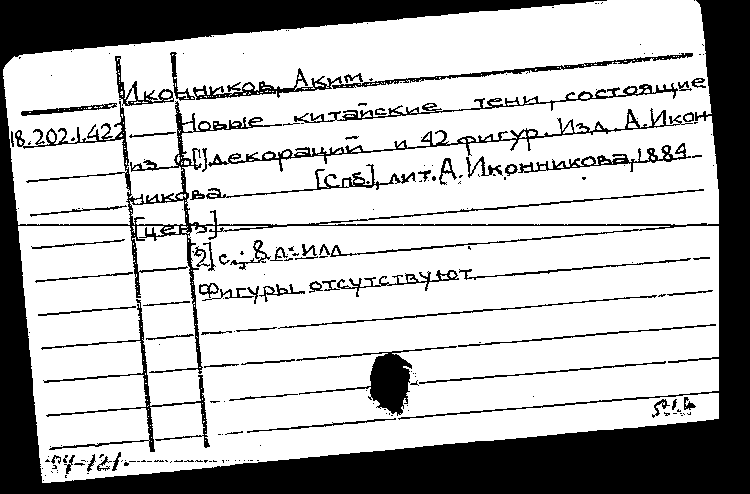 Иконников, Аким.
18.202.1.422 Новые китайские тени, состоящие
из 6[!] декораций и 42 фигур. Изд. А. Икон-
никова. [Спб.], лит. А. Иконникова, 1884
[ценз.].
[2] с.; 8 л. илл
Фигуры отсутствуют
94-121.